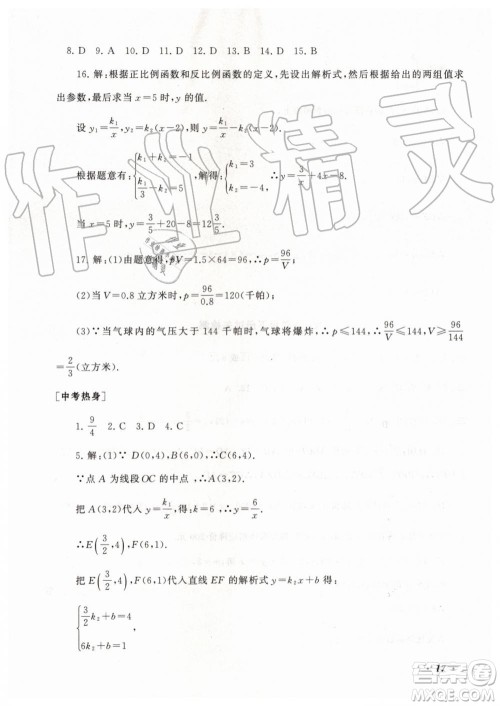 8. D　9. A　10. D　11. D　12. D　13. B　14. D　15. B
16. 解：根据正比例函数和反比例函数的定义，先设出解析式，然后根据给出的两组值求
出参数，最后求出当 x=5 时，y 的值.
设 y₁=k₁/x，y₂=k₂(x−2)，则 y=k₁/x−k₂(x−2).
根据题意有：{k₁+k₂=−1，k₁/3−k₂=5，解得：{k₁=3，k₂=−4. ∴y=3/x+4x−8.
当 x=5 时，y=3/5+20−8=12 3/5.
17. 解：(1)由题意可得：pV=1.5×64=96，∴p=96/V；
(2)当 V=0.8 立方米时，p=96/0.8=120(千帕)；
(3)∵当气球内的气压大于 144 千帕时，气球将爆炸，∴p≤144，∴96/V≤144，V≥96/144
=2/3(立方米).
[中考热身]
1. 9/4　2. C　3. D　4. C
5. 解：(1)∵D(0,4)，B(6,0)，∴C(6,4).
∵点 A 为线段 OC 的中点，∴A(3,2).
把 A(3,2)代入 y=k₁/x，得：k₁=6，∴y=6/x.
∴E(3/2,4)，F(6,1).
把 E(3/2,4)，F(6,1)代入直线 EF 的解析式 y=k₂x+b 得：
{3/2k₂+b=4
6k₂+b=1
作业精灵
答案圈